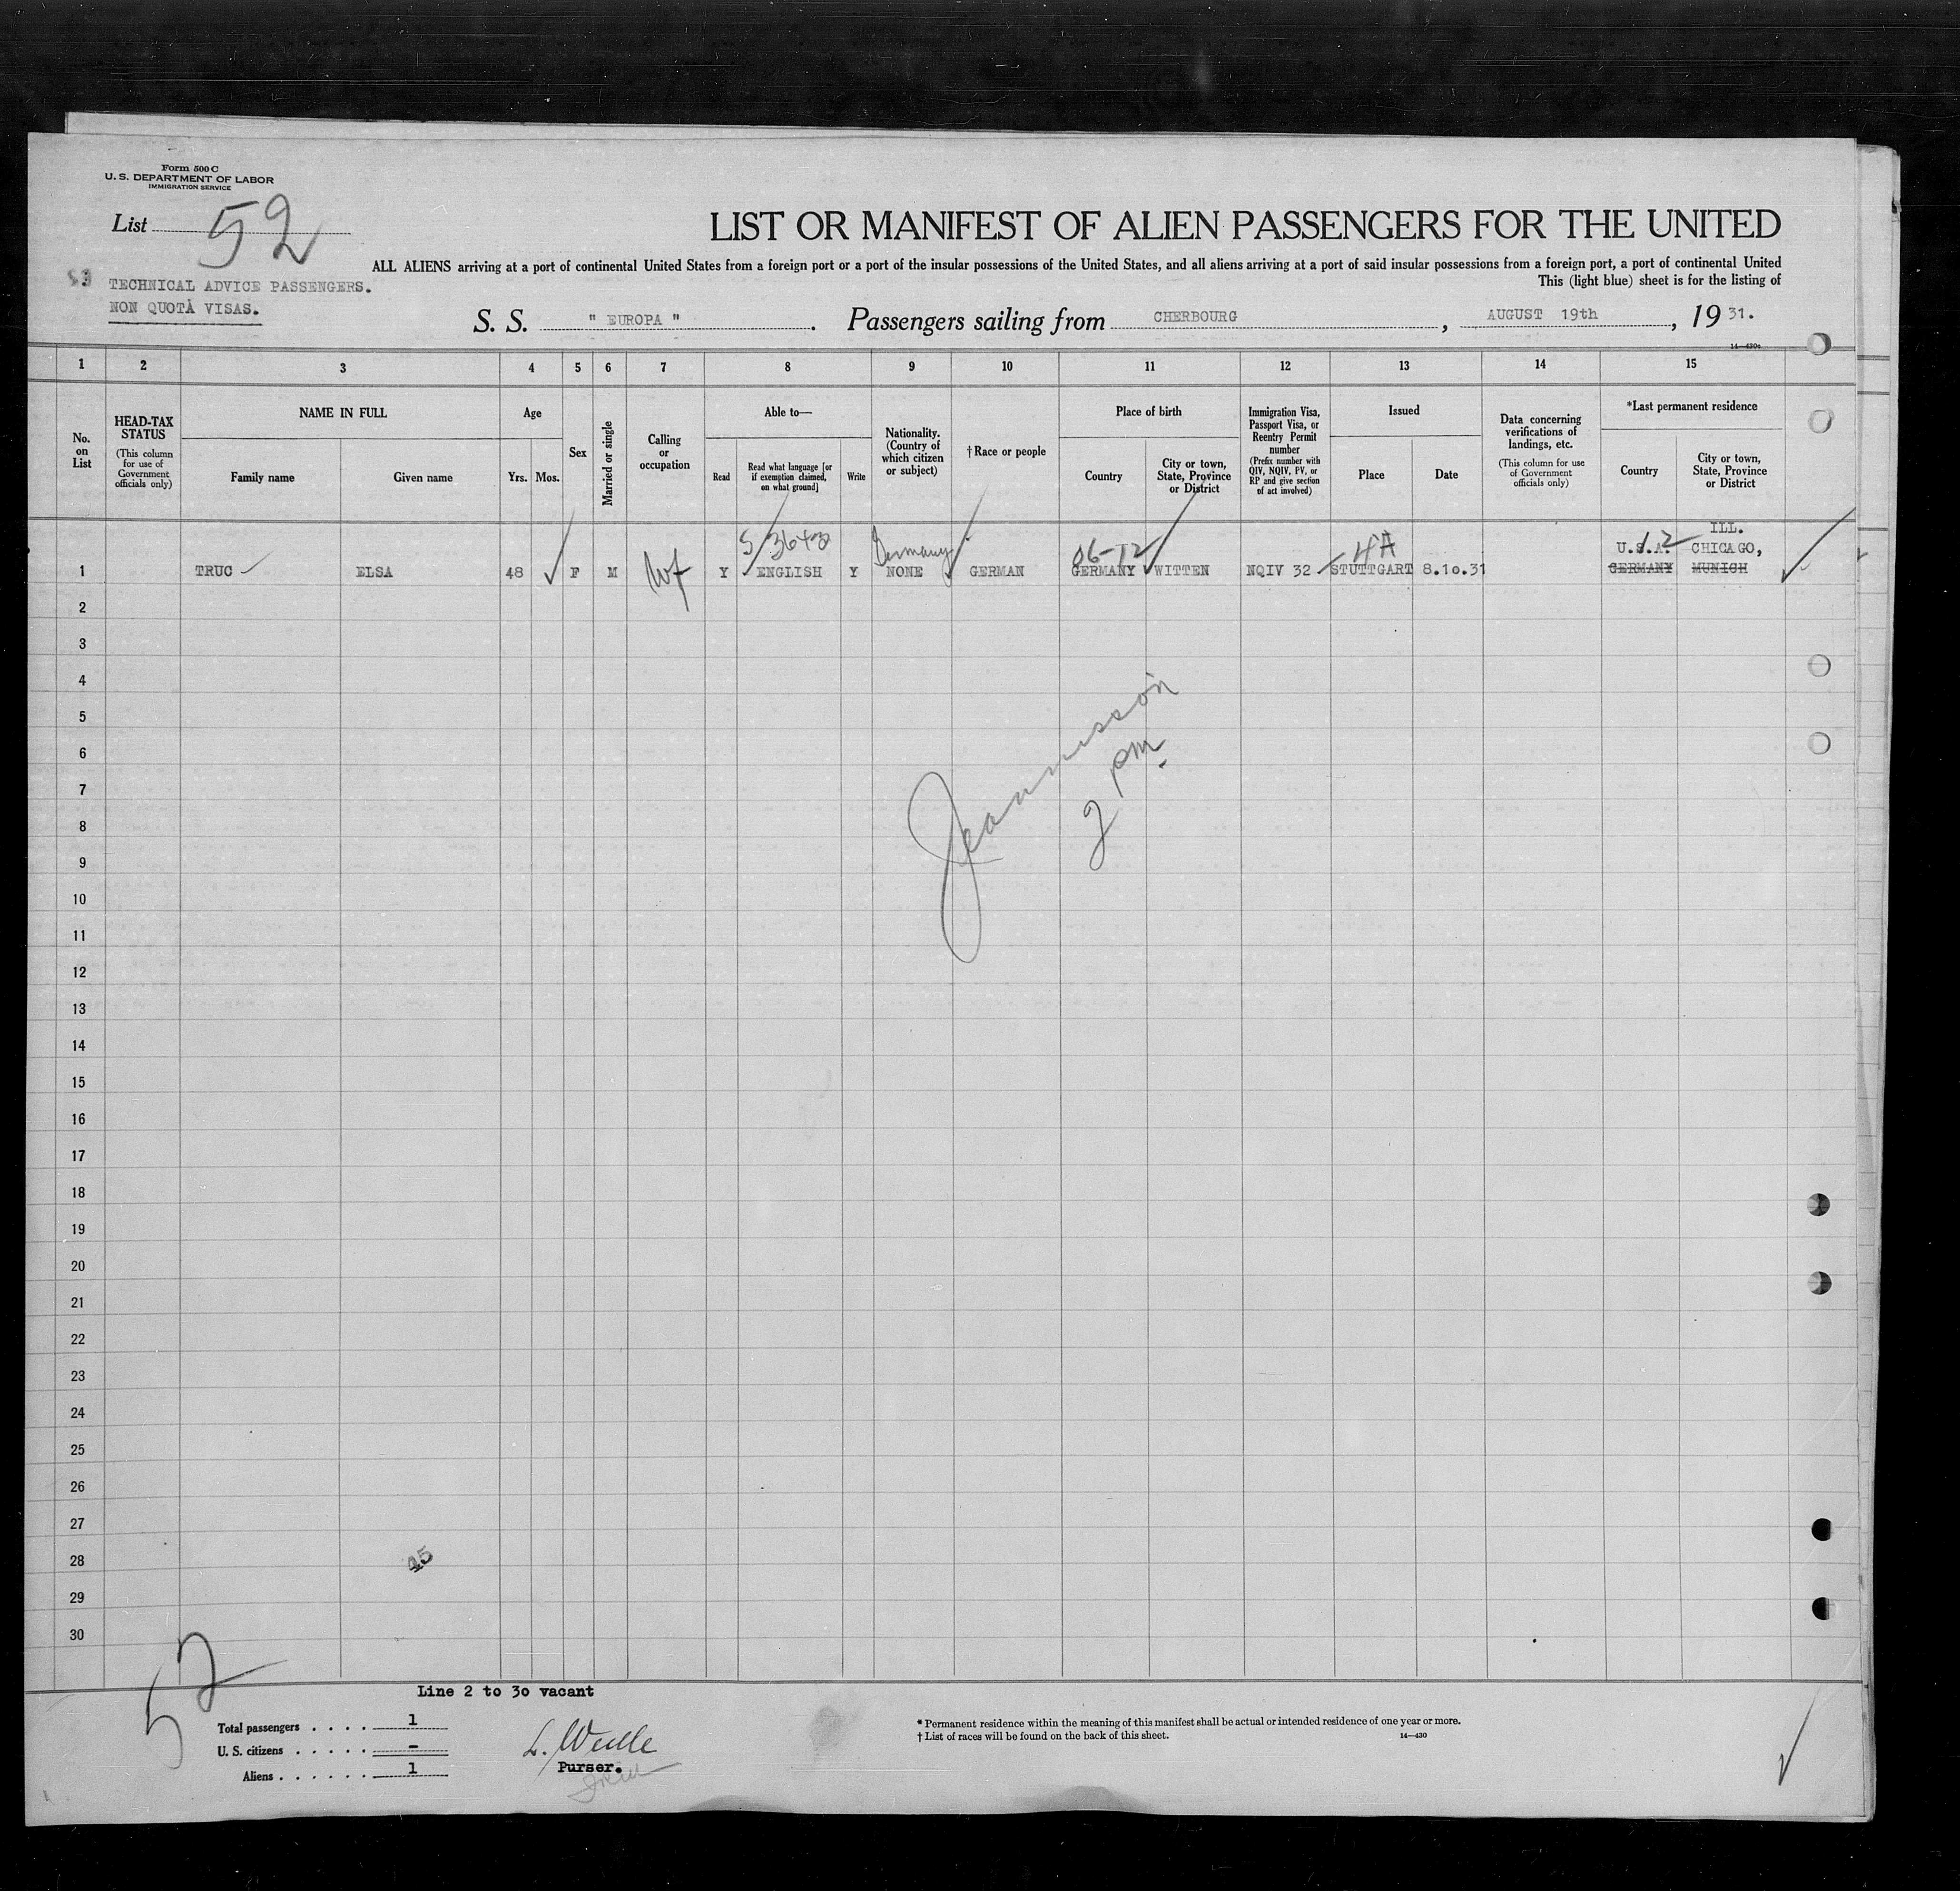 Form 500 C
U. S. DEPARTMENT OF LABOR
IMMIGRATION SERVICE
List 52
LIST OR MANIFEST OF ALIEN PASSENGERS FOR THE UNITED
ALL ALIENS arriving at a port of continental United States from a foreign port or a port of the insular possessions of the United States, and all aliens arriving at a port of said insular possessions from a foreign port, a port of continental United
This (light blue) sheet is for the listing of
53
TECHNICAL ADVICE PASSENGERS.
NON QUOTA VISAS.
S. S. " EUROPA ". Passengers sailing from CHERBOURG, AUGUST 19th, 19 31.
14—430c
1 2 3 4 5 6 7 8 9 10 11 12 13 14 15
No. on List
HEAD-TAX STATUS (This column for use of Government officials only)
NAME IN FULL
Family name Given name
Age
Yrs. Mos.
Sex
Married or single
Calling or occupation
Able to—
Read Read what language [or if exemption claimed, on what ground] Write
Nationality. (Country of which citizen or subject)
†Race or people
Place of birth
Country City or town, State, Province or District
Immigration Visa, Passport Visa, or Reentry Permit number (Prefix number with QIV, NQIV, PV, or RP and give section of act involved)
Issued
Place Date
Data concerning verifications of landings, etc. (This column for use of Government officials only)
*Last permanent residence
Country City or town, State, Province or District
5/3643 Germany 06-12 4A U.S.A. 12 ILL. CHICAGO,
1 TRUC ELSA 48 F M Wf Y ENGLISH Y NONE GERMAN GERMANY WITTEN NQIV 32 STUTTGART 8.10.31 GERMANY MUNICH
2
3
4
5
6
7
8
9
10
11
12
13
14
15
16
17
18
19
20
21
22
23
24
25
26
27
28
29
30
2 pm
45
52
Line 2 to 30 vacant
Total passengers . . . . . 1
U. S. citizens . . . . . –
Aliens . . . . . . 1
Purser.
* Permanent residence within the meaning of this manifest shall be actual or intended residence of one year or more.
† List of races will be found on the back of this sheet.
14—430